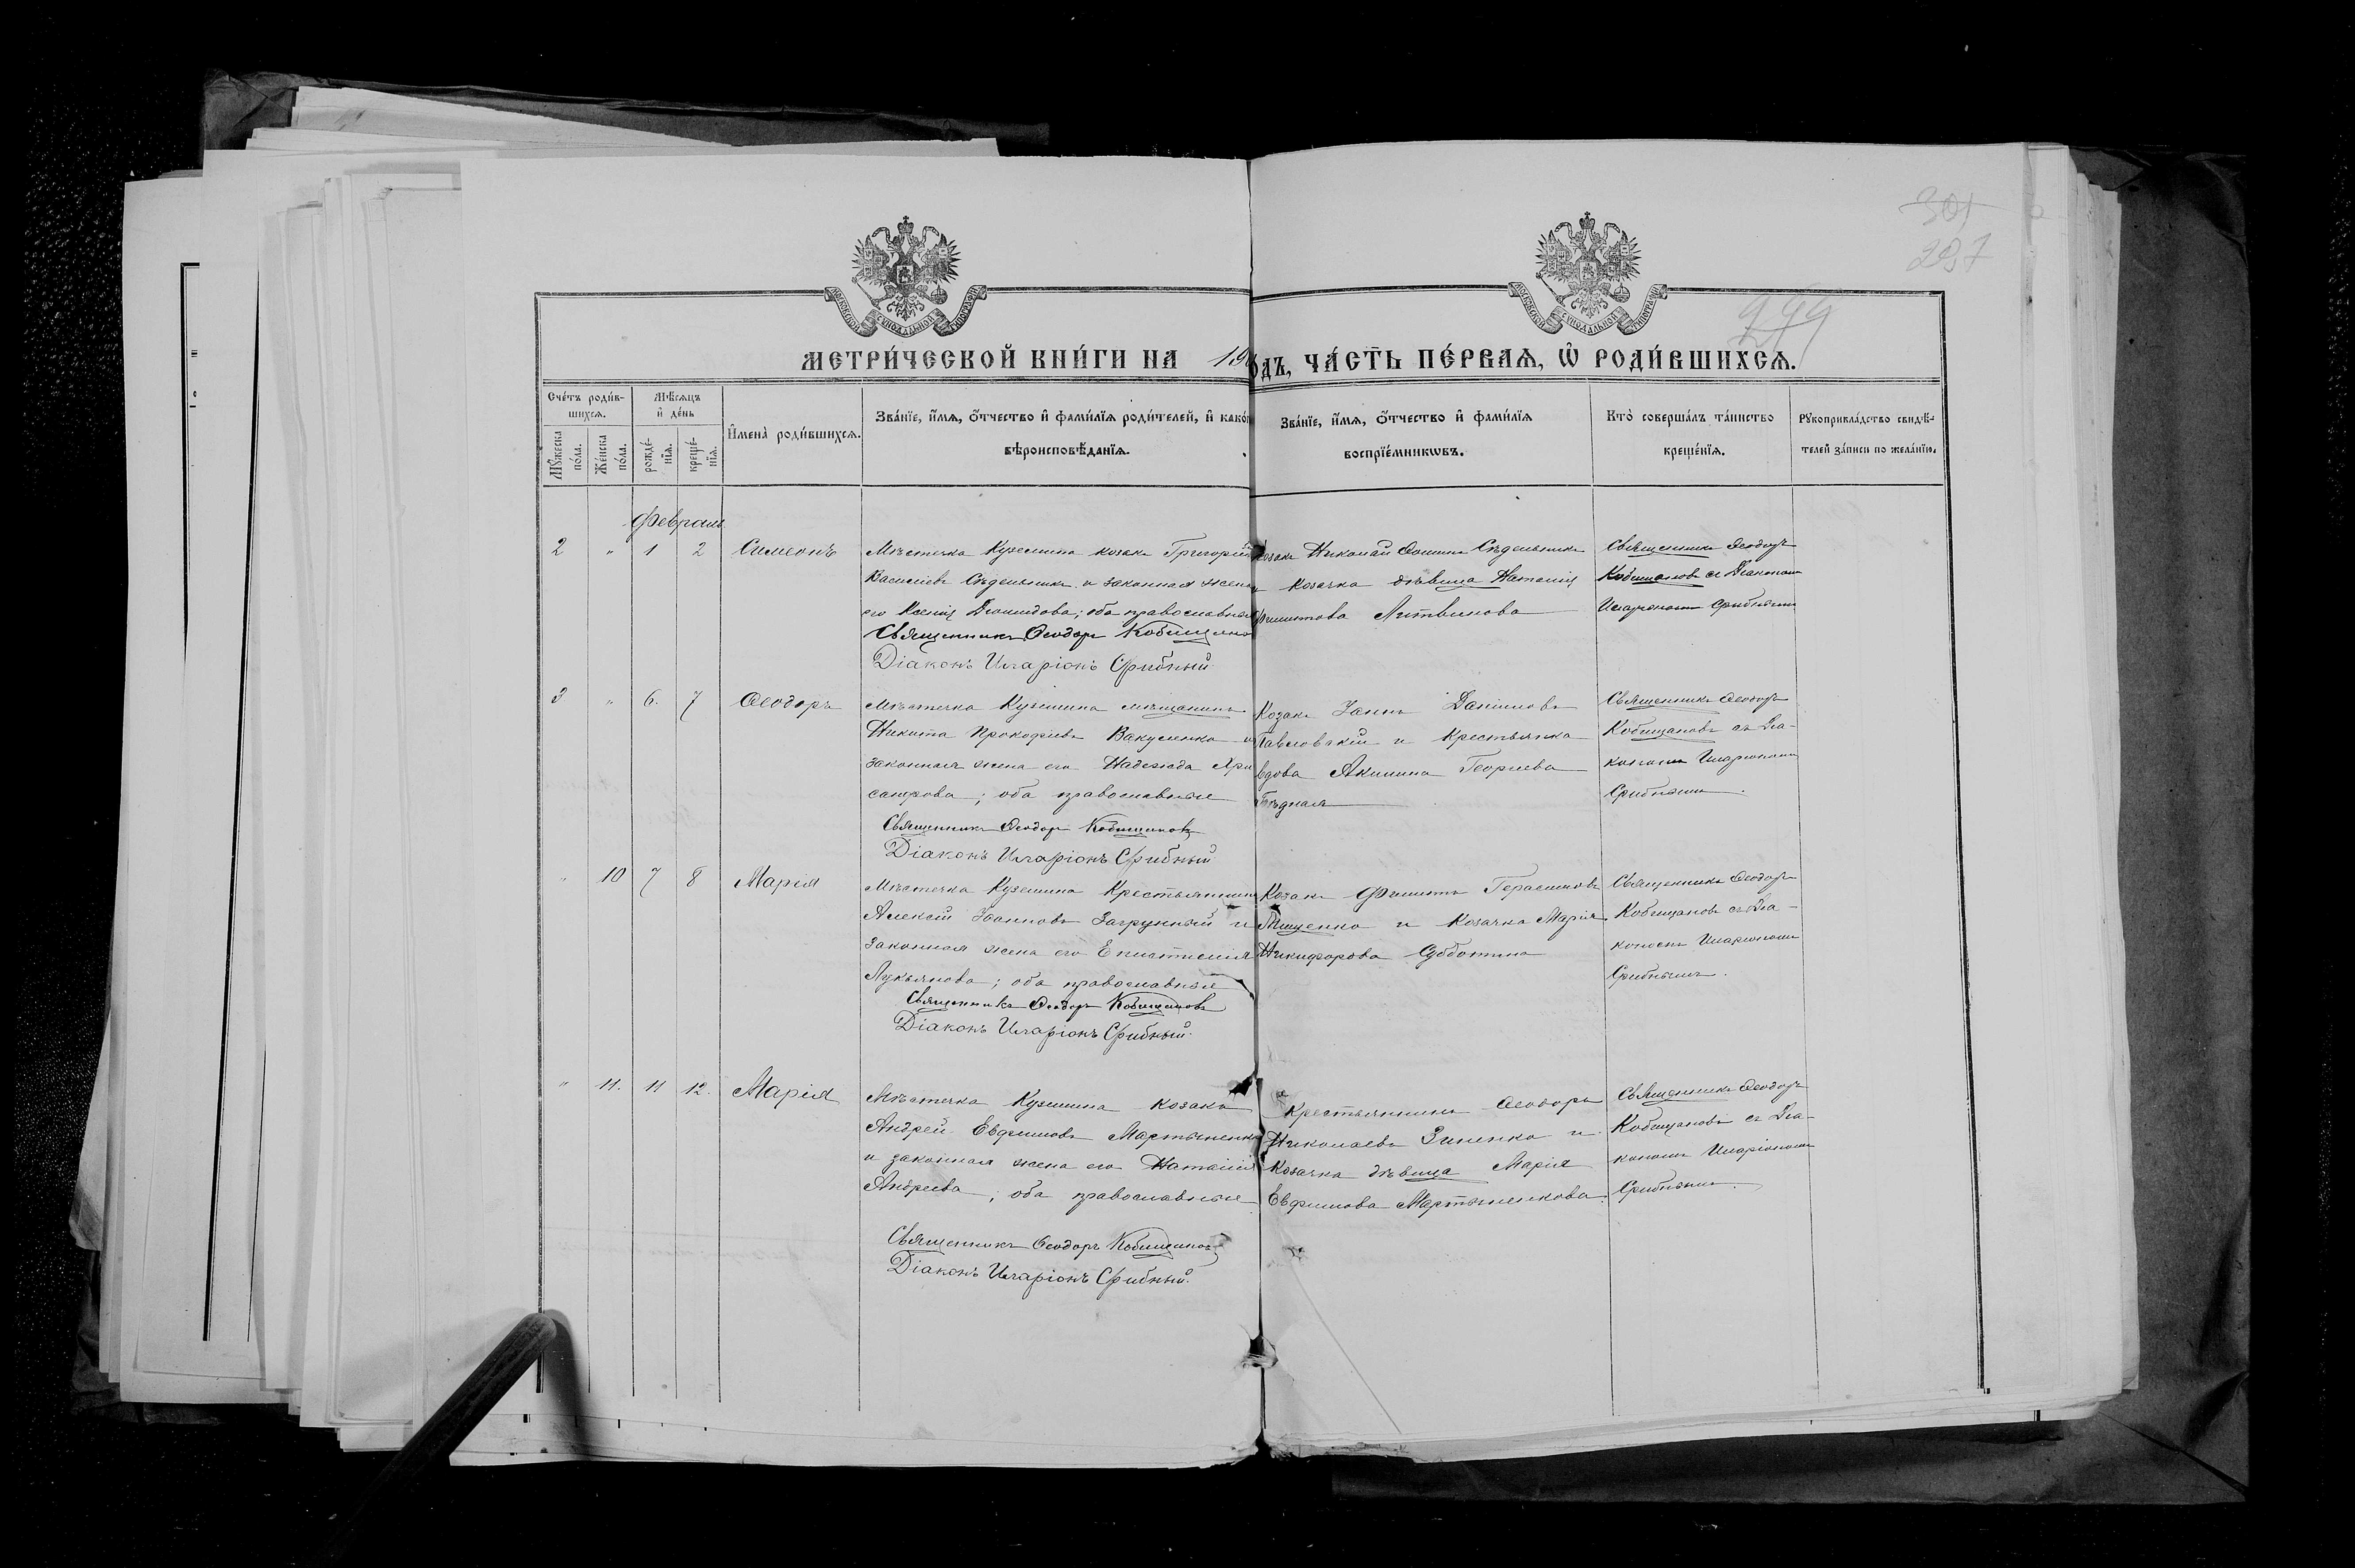 301
297
299
МОСКОВСКОЙ СѴНОДАЛЬНОЙ ТИПОГРАФІИ
МОСКОВСКОЙ СѴНОДАЛЬНОЙ ТИПОГРАФІИ
МЕТРИ́ЧЕСКОЙ КНИ́ГИ НА 19
ОДЪ, ЧА́СТЬ ПЕ́РВАѦ, Ѡ҆ РОДИ́ВШИХСѦ.
Счетъ роди́в-
шихсѧ.
Мѣ́сѧцъ
и҆ де́нь
Мꙋ́жеска
по́ла.
Же́нска
по́ла.
рожде́-
нїѧ.
креще́-
нїѧ.
И҆мена̀ роди́вшихсѧ.
Зва́нїе, и҆́мѧ, ѻ҆́тчество и҆ фами́лїѧ роди́телей, и҆ како́г
вѣроисповѣ́данїѧ.
Зва́нїе, и҆́мѧ, ѻ҆́тчество и҆ фами́лїѧ
воспрїе́мникѡвъ.
Кто̀ соверша́лъ та́инство
креще́нїѧ.
Рꙋкоприкла́дство свидѣ́-
телей за́писи по жела́нїю.
Февраль
2 " 1 2 Симеонъ
Мѣстечка Куземина козакъ Григорій
Василіевъ Сѣдельникъ и законная жена
его Ксенія Діомидова; оба православные
Священникъ Ѳеодоръ Кобищановъ
Діаконъ Иларіонъ Срибный
козакъ Николай Ѳоминъ Сѣдельникъ
и козачка дѣвица Наталія
Филиппова Литвинова
Священникъ Ѳеодоръ
Кобищановъ съ Діакономъ
Иларіономъ Срибнымъ
3 " 6. 7 Ѳеодоръ
Мѣстечка Куземина мѣщанинъ
Никита Прокофіевъ Вакуленко и
законная жена его Надежда Хри
санфова; оба православные
Священникъ Ѳеодоръ Кобищановъ
Діаконъ Иларіонъ Срибный
Козакъ Іаннъ Даніиловъ
Павловскій и Крестьянка
вдова Акилина Георгіева
Бѣдная
Священникъ Ѳеодоръ
Кобищановъ съ Діа-
кономъ Иларіономъ
Срибнымъ.
" 10 7 8 Марія
Мѣстечка Куземина Крестьянинъ
Алексій Іоанновъ Загрунный и
законная жена его Епистимія
Лукьянова; оба православные
Священникъ Ѳеодоръ Кобищановъ
Діаконъ Иларіонъ Срибный.
Козакъ Филиппъ Герасимовъ
Мищенко и Козачка Марія
Никифорова Субботина
Священникъ Ѳеодоръ
Кобищановъ съ Діа-
кономъ Иларіономъ
Срибнымъ.
" 11. 11 12. Марія
Мѣстечка Куземина козакъ
Андрей Евфимовъ Мартыненко
и законная жена его Наталія
Андреева; оба православные
Священникъ Ѳеодоръ Кобищановъ
Діаконъ Иларіонъ Срибный.
Крестьянинъ Ѳеодоръ
Николаевъ Зиненко и
Козачка дѣвица Марія
Евфимова Мартыненкова.
Священникъ Ѳеодоръ
Кобищановъ съ Діа-
кономъ Иларіономъ
Срибнымъ.